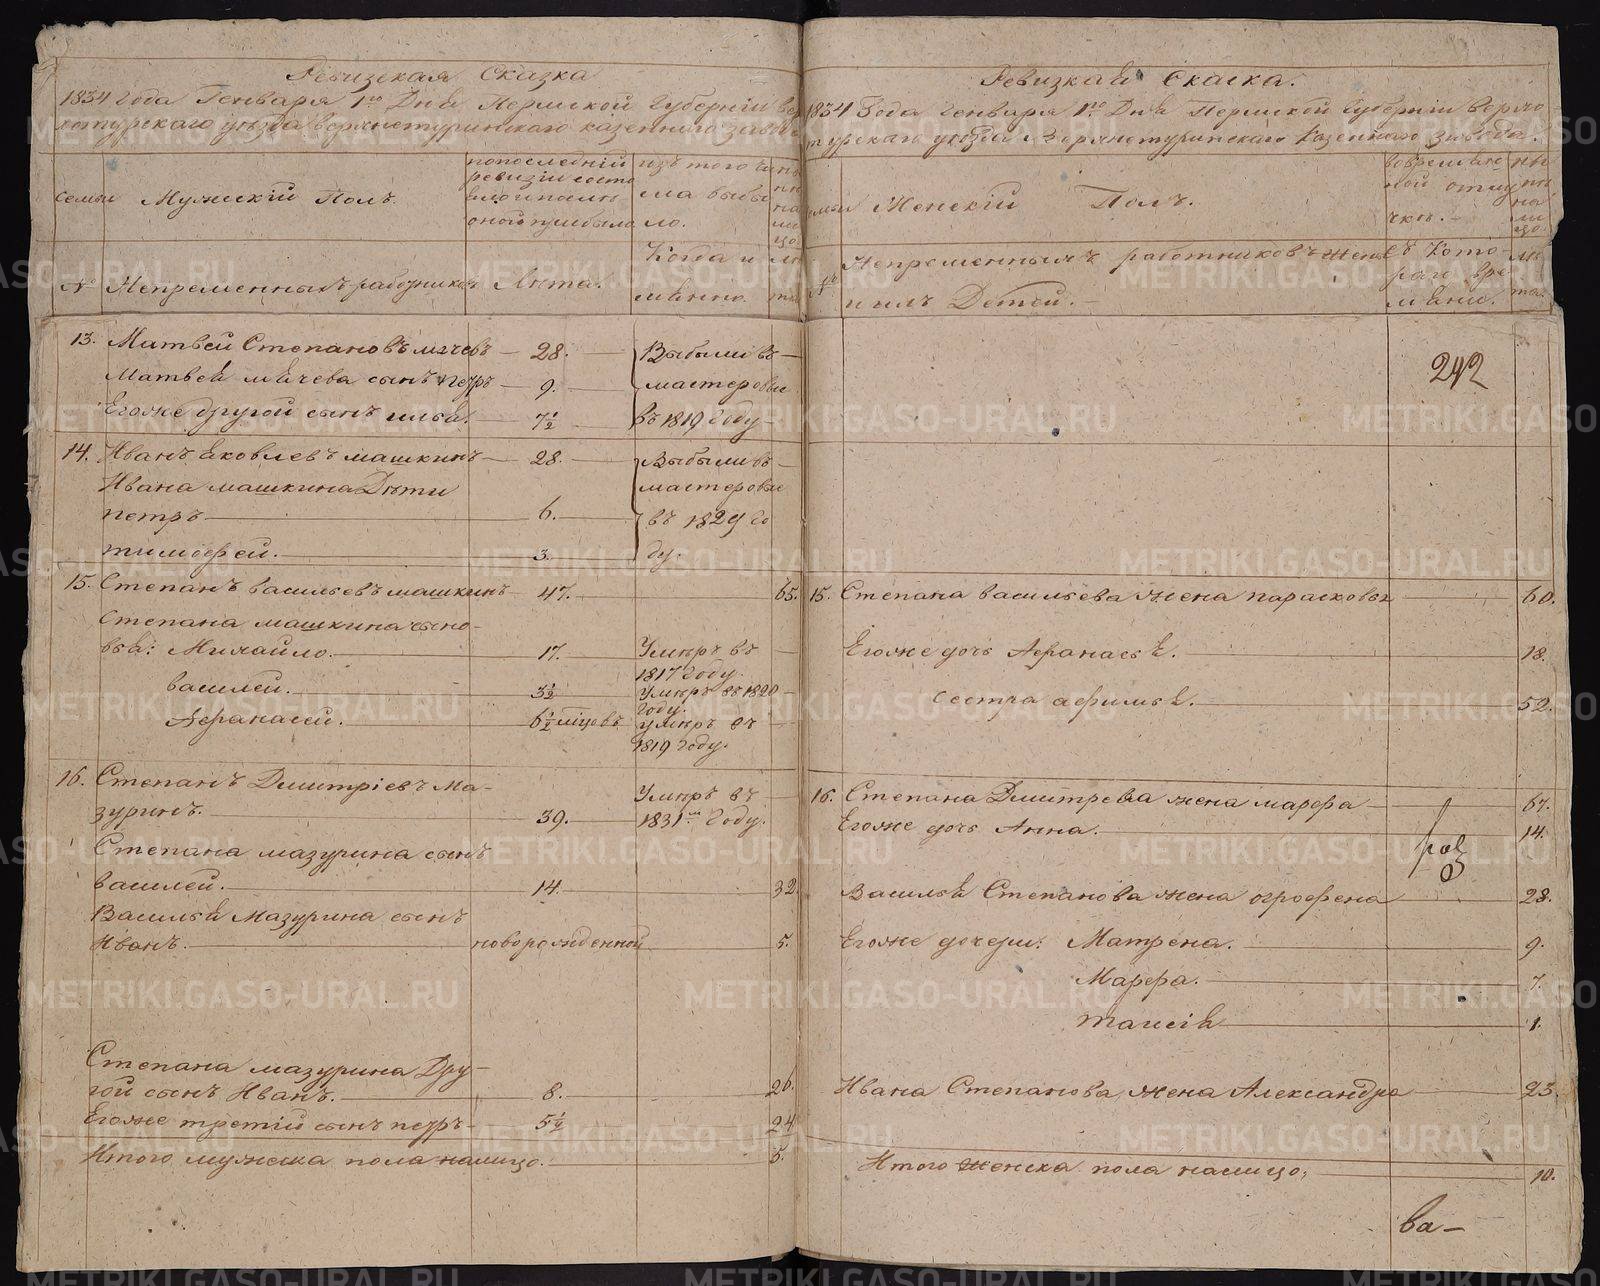 Ревизская Сказка
1834 Года Генваря 1го Дня Пермской Губернии вер
хотурского уезда верхнетуринского казенного завода
семьи
Мужеский Полъ.
попоследней
ревизии состо
яло и после
оной прибыло
изъ того чи
сла выбы
ло.
ны
не
на
ли
цо.
№
Непременныхъ работников
Лета.
Когда и
мянно.
ле
та.
13. Матвей Степановъ — 28. — Выбыли въ
Матвея сынъ петръ — 9. — мастеровые
Егоже другой сынъ илья. 7½ въ 1819 Году
14. Иванъ яковлевъ машкинъ — 28. — Выбыли въ
Ивана машкина Дети мастеровые
петръ — 6. въ 1829 Го
тимофей. — 3. ду.
15. Степанъ васильевъ машкинъ — 47. — 65.
Степана машкина сыно-
вья: Михайло. — 17. Умеръ въ
1817 Году.
василей. — 3½ умеръ въ 1820
Году.
Афанасей. — 6½ мцовъ умеръ въ
1819 Году.
16. Степанъ Дмитріевъ Ма- Умеръ въ —
зуринъ. — 39. 1831м Году.
Степана мазурина сынъ
василей. — 14. — 32
Василья Мазурина сынъ
Иванъ. — новорожденной — 5.
Степана мазурина Дру-
гой сынъ Иванъ. — 8. — 26.
Егоже третій сынъ петръ — 5½ — 24
Итого мужеска пола налицо. — 5.
Ревизкая Скаска.
1834 Года Генваря 1го Дня Пермской Губернии Верхо
турского уезда Верхнетуринского Казенного завода.
семьи
Женский Полъ.
вовременно
ной отлу
чке. —
ны
не
на
ли
цо.
№
Непременныхъ работниковъ жены
ихъ Детей. —
съ Кото-
раго вре
мени.
ле
та.
242
15. Степана васильева жена парасковья — 60.
Егоже дочь Афанасья. — 18.
сестра афимья. — 52.
16. Степана Дмитрева жена марфа — 67.
Егоже дочь Анна. — 14.
Василья Степанова жена огрофена — 28.
Егоже дочери: Матрена. — 9.
Марфа. — 7.
таисія — 1.
Ивана Степанова жена Александра — 23.
Итого женска пола налицо, — 10.
ва-
METRIKI.GASO-URAL.RU